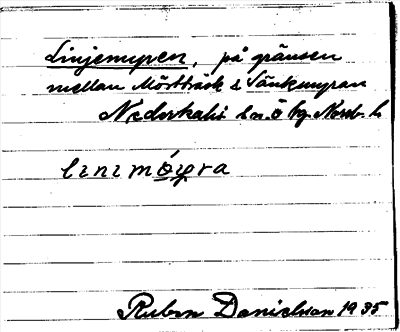 Linjemyren, på gränsen
mellan Mörtträsk & Sänkmyran
Nederkalix sn. Ö bg. Norrb. l.
linimóyra
Ruben Danielsson 1935